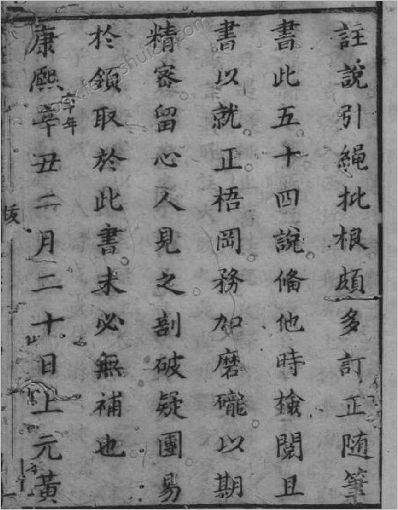 註說引繩批根頗多訂正随筆
書此五十四說俻他時檢閱且
書以就正梧岡務加磨礲以期
精密留心人見之剖破疑團易
於領取於此書未必無補也
康熙辛丑二月二十日上元黃